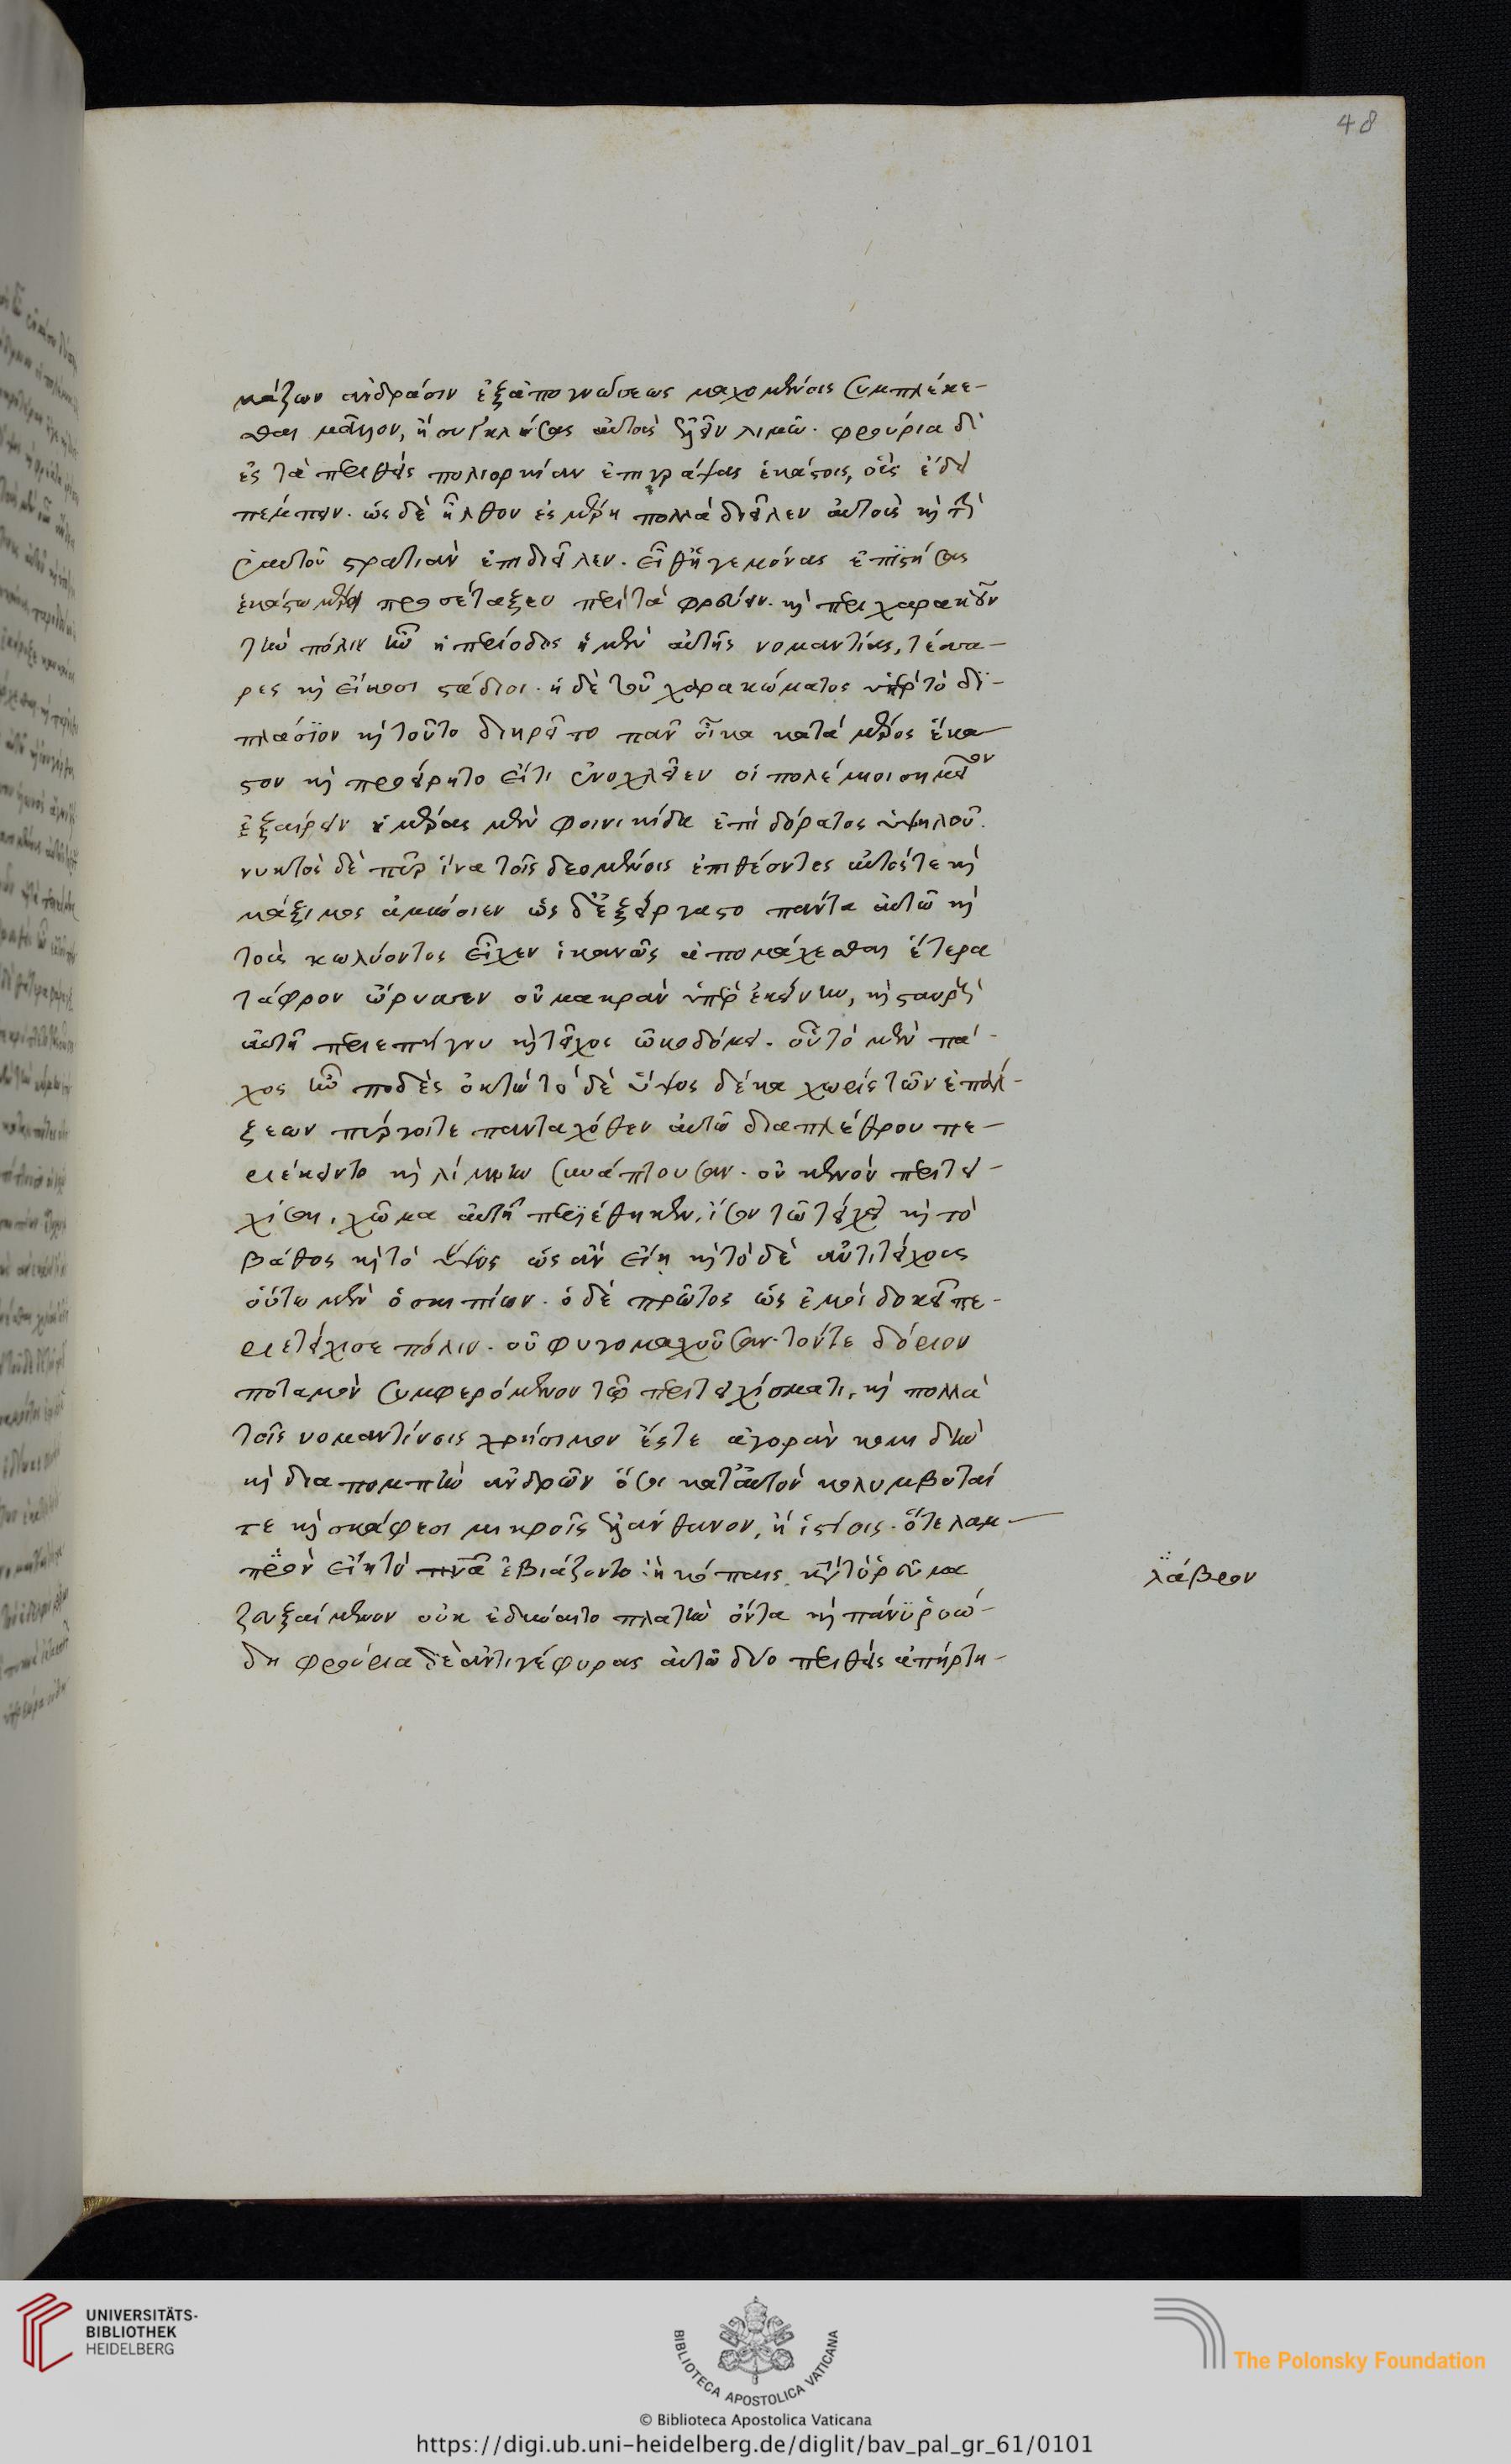 μάζων ἀνδράσιν ἐξαπογνώσεως μαχομένοις συμπλέκε-
σθαι μᾶλλον, ἢ συγκλήσας αὐτοὺς ἑλεῖν λιμῶ. φρούρια δὲ
ἐς τὰ περιθεὶς πολιορκίαν ἐπιγράψας ἑκάστοις, οὓς ἔδει
πέμπειν. ὡς δὲ ἦλθον ἐς μέρη πολλὰ διεῖλεν αὐτοὺς καὶ τὴν
ἑαυτοῦ στρατιὰν ἐπιδιεῖλεν. εἶθ' ἡγεμόνας ἐπιστήσας
ἑκάστω μέρει προσέταξεν περιταφρεύειν. καὶ περιχαρακοῦν
τὴν πόλιν ἦν ἡ περίοδος ἡ μὲν αὐτῆς νομαντίας, τέσσα-
ρες καὶ εἴκοσι στάδιοι. ἡ δὲ τοῦ χαρακώματος ὑπὲρ τὸ δι-
πλάσϊον καὶ τοῦτο διῃρεῖτο πᾶν οἷκα κατὰ μέρος ἕκα-
στον καὶ προείρητο εἴτι ἐνοχλεῖεν οἱ πολέμιοι σημεῖον
ἐξαίρειν ἡμέρας μὲν φοινικίδα ἐπὶ δόρατος ὑψηλοῦ.
νυκτὸς δὲ πῦρ ἵνα τοῖς δεομένοις ἐπιθέοντες αὐτόςτε καὶ
μάξιμος ἀμύνοιεν ὡς δ' ἐξείργαστο πάντα αὐτῶ καὶ
τοὺς κωλύοντας εἶχεν ἱκανῶς ἀπομάχεσθαι ἑτέρα
τάφρον ὤρυσσεν οὐ μακρὰν ὑπὲρ ἐκείνην, καὶ σταυροὺς
αὐτῆ περιεπήγνυ καὶ τεῖχος ὠκοδόμει. οὗ τὸ μὲν πά-
χος ἦν πόδες ὀκτὼ τὸ δὲ ὕψος δέκα χωρὶς τῶν ἐπάλ-
ξεων πύργοιτε πανταχόθεν αὐτῶ διαπλέθρου πε-
ριέκειντο καὶ λίμνην συνάπτουσαν. οὐκ ἐνὸν περιτει-
χίσαι, χῶμα αὐτῆ περϊέθηκεν, ἴσον τῶ τείχει καὶ τὸ
βάθος καὶ τὸ ὕψος ὡς ἂν εἴη καὶ τὸ δὲ ἀντιτείχους
οὕτω μὲν ὁ σκιπίων. ὁ δὲ πρῶτος ὡς ἐμοὶ δοκεῖ πε-
ριετείχισε πόλιν. οὐ φυγομαχοῦσαν. τόντε δόριον
ποταμὸν συμφερόμενον τῶ περιτειχίσματι, καὶ πολλὰ
τοῖς νομαντίνοις χρήσιμον ἔςτε ἀγορὰν κομιδὴν
καὶ διαπομπὴν ἀνδρῶν ὅσοι κατ' αὐτὸν κολυμβηταί
τε καὶ σκάφεσι μικροῖς ἐλάνθανον, ἢ ἱστίοις. ὅτε λαμ-
πρὸν εἴη τὸ πνεῦμα ἐβιάζοντο ἢ κώπαις κατὰ τὸ ῥεῦμα
ζευξαί μενον οὐκ ἐδύνατο πλατὺν ὄντα καὶ πάνϋ ῥοώ-
δη φρούρια δὲ ἀντιγέφυρας αὐτῶ δύο περιθεὶς ἀπήρτη-
λάβρον
48
UNIVERSITÄTS-
BIBLIOTHEK
HEIDELBERG
BIBLIOTECA APOSTOLICA VATICANA
© Biblioteca Apostolica Vaticana
The Polonsky Foundation
https://digi.ub.uni-heidelberg.de/diglit/bav_pal_gr_61/0101